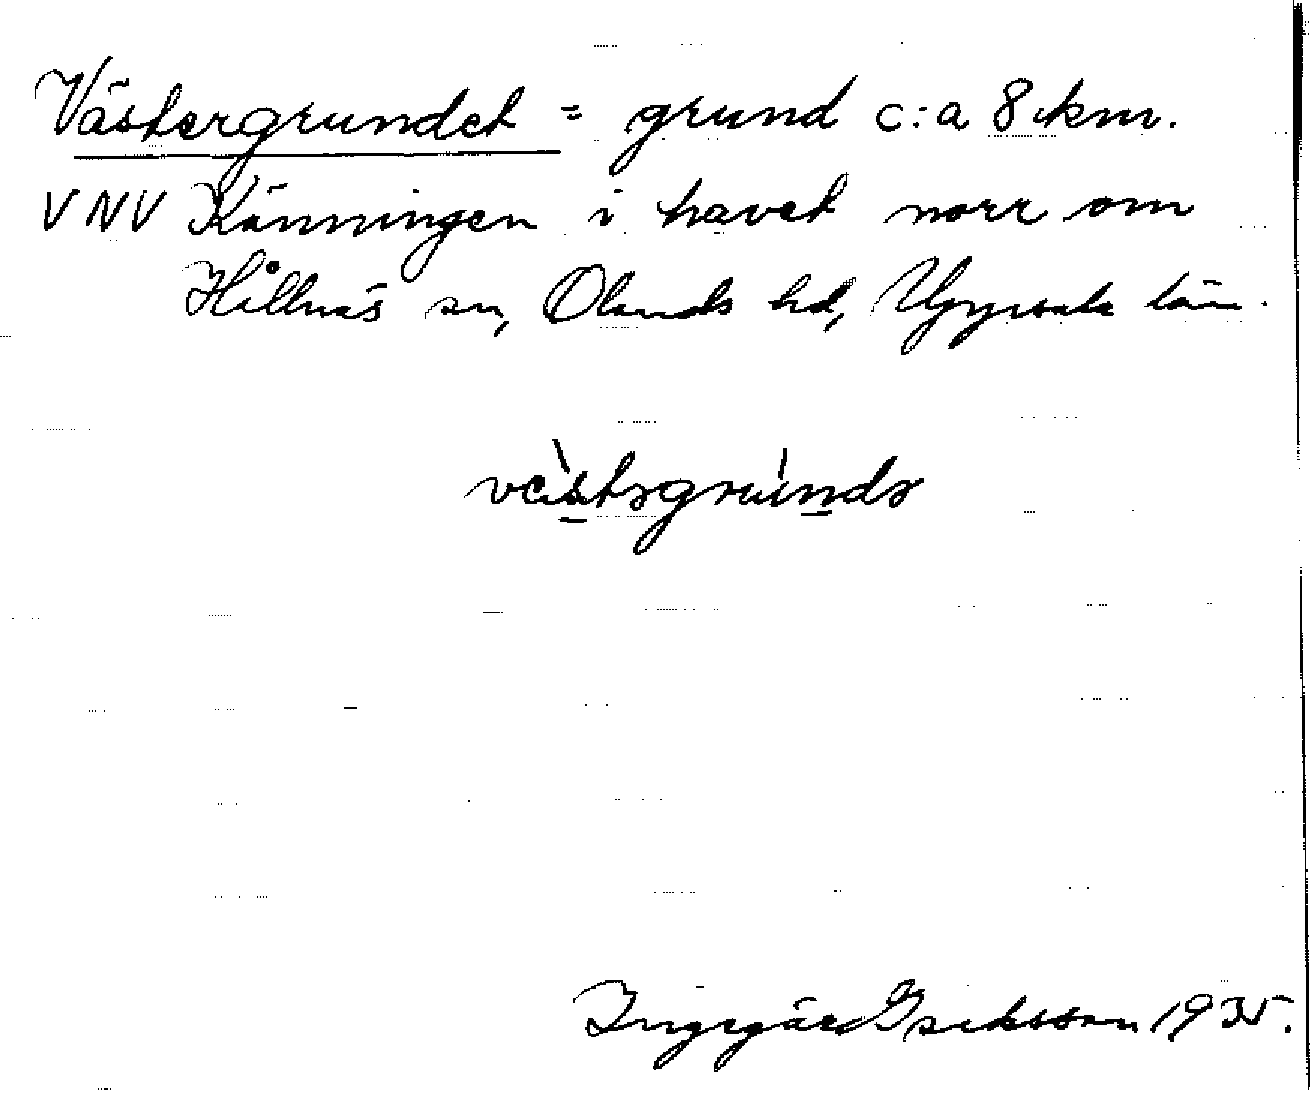 Västergrundet = grund c:a 8 km.
VNV Känningen i havet norr om
Hållnäs sn, Olands hd, Uppsala län.
västəgrundə
Ingegärd Eriksson 1935.